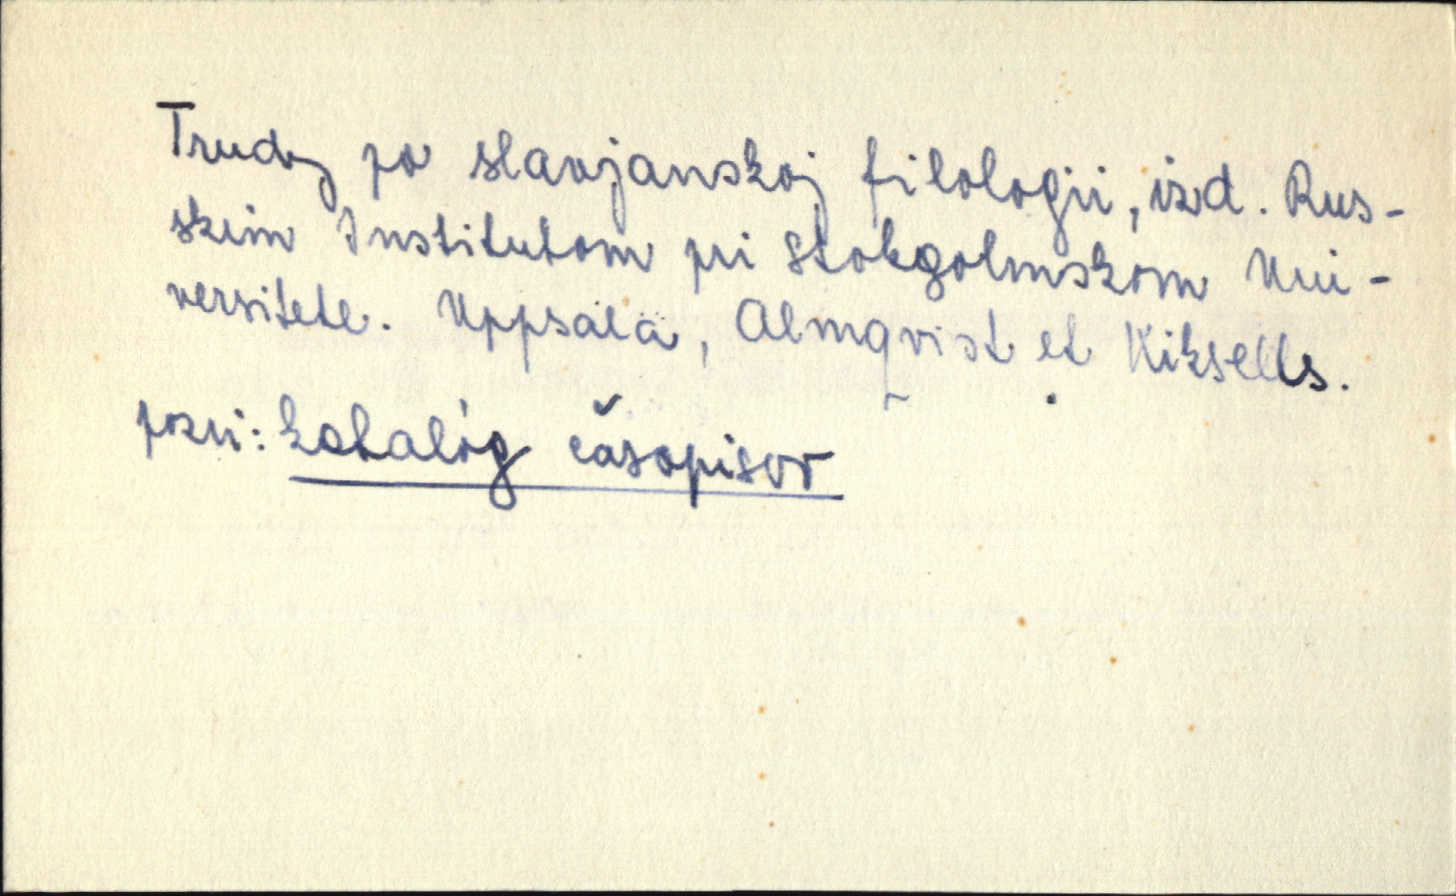 Trudy po slavjanskoj filologii, izd. Rus-
skim Institutom pri Stokgolmskom Uni-
versitete. Uppsala, Almqvist et Wiksells.
pozri: katalóg časopisov